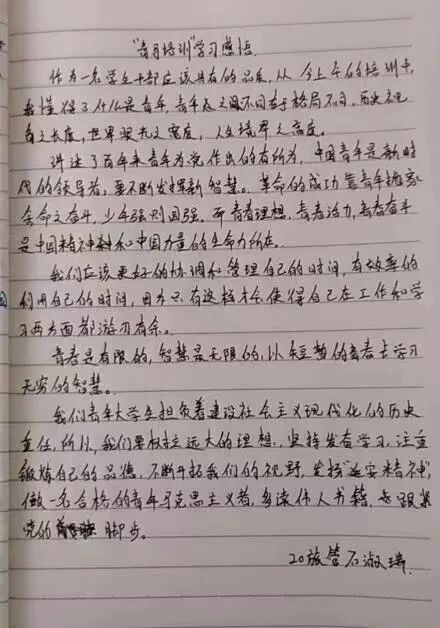 “青马培训”学习感悟
作为一名学生干部应该具有的品质,从今上午的培训中,
我懂得了什么是青年,青年人之间不同在于格局不同,历史视
角之长度,世界眼光之宽度,人生境界之高度。
讲述了百年来青年为党作出的有所为,中国青年是新时
代的领导者,要不断发挥新智慧。革命的成功靠青年抛家
舍命之奋斗,少年强则国强。所青春理想,青春活力,青春奋斗
是中国精神和中国力量的生命力所在。
我们应该更好的协调和管理自己的时间,有效率的
利用自己的时间,因为只有这样才会使得自己在工作和学
习两方面都游刃有余。
青春是有限的,智慧是无限的,以短暂的青春去学习
无穷的智慧。
我们青年大学生担负着建设社会主义现代化的历史
重任,所以,我们要树立远大的理想,坚持发奋学习,注重
锻炼自己的品德,不断开拓我们的视野,发扬“延安精神”,
做一名合格的青年马克思主义者,多读伟人书籍,紧跟
党的脚步。
20旅管石淑瑞